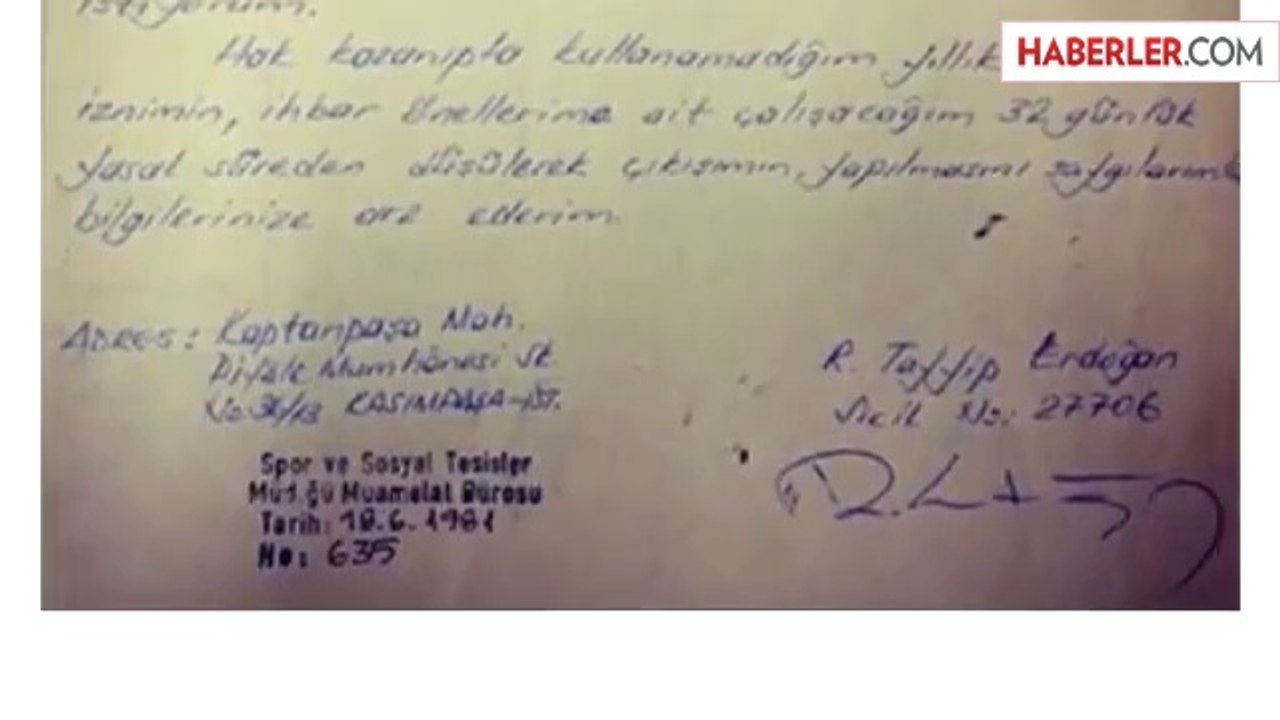 istiyorum.
HABERLER.COM
Hak kazanıpta kullanamadığım yıllık
iznimin, ihbar önellerime ait çalışacağım 32 günlük
yasal süreden düşülerek çıkışımın yapılmasını saygılarımla
bilgilerinize arz ederim.
ADRES: Kaptanpaşa Mah.
R. Tayyip Erdoğan
Piyale Mumhânesi Sk.
Sicil No: 27706
KASIMPAŞA-İST.
Spor ve Sosyal Tesisler
Müd.ğü Muamelat Bürosu
Tarih: 18.6.1981
No: 635